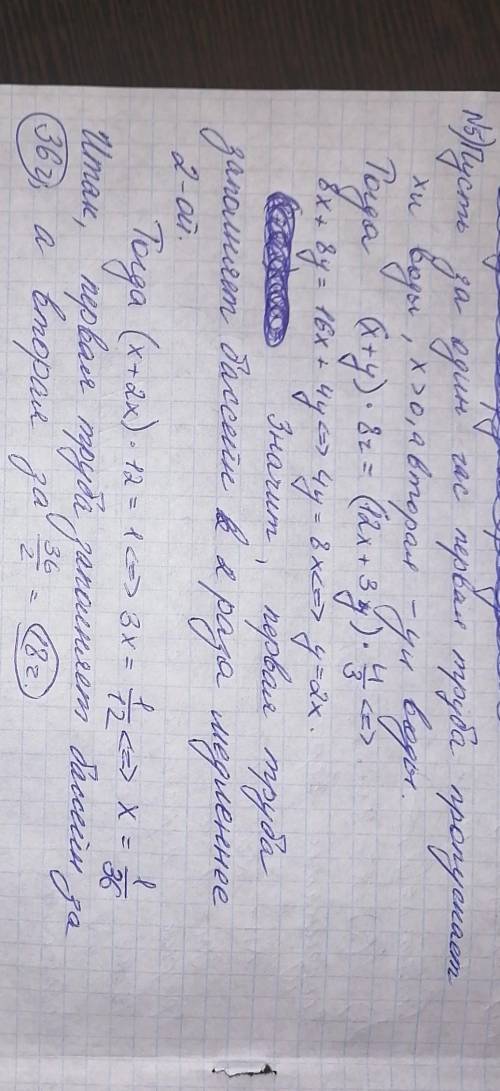 №5) Пусть за один час первая труба пропускает
xл воды, x>0, а вторая – yл воды.
Тогда (x+y)·8ч = (12x+3y)·4/3 <=>
8x+8y=16x+4y<=>4y=8x<=>y=2x.
Значит, первая труба
заполняет бассейн в 2 раза медленнее
2-ой.
Тогда (x+2x)·12=1<=>3x=1/12<=>x=1/36
Итак, первая труба заполняет бассейн за
36ч, а вторая за 36/2 = 18ч